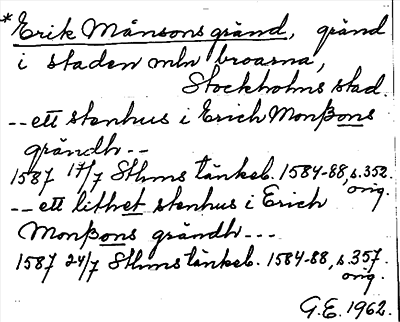 *Erik Månsons gränd, gränd
i staden mln broarna,
Stockholms stad.
--ett stenhus i Erich Monßons
grändh--
1587 17/7 Sthms tänkeb. 1584-88, s.352.
orig.
--ett lithet stenhus i Erich
Monßons grändh---
1587 24/7 Sthms tänkeb. 1584-88, s.357.
orig.
G.E. 1962.